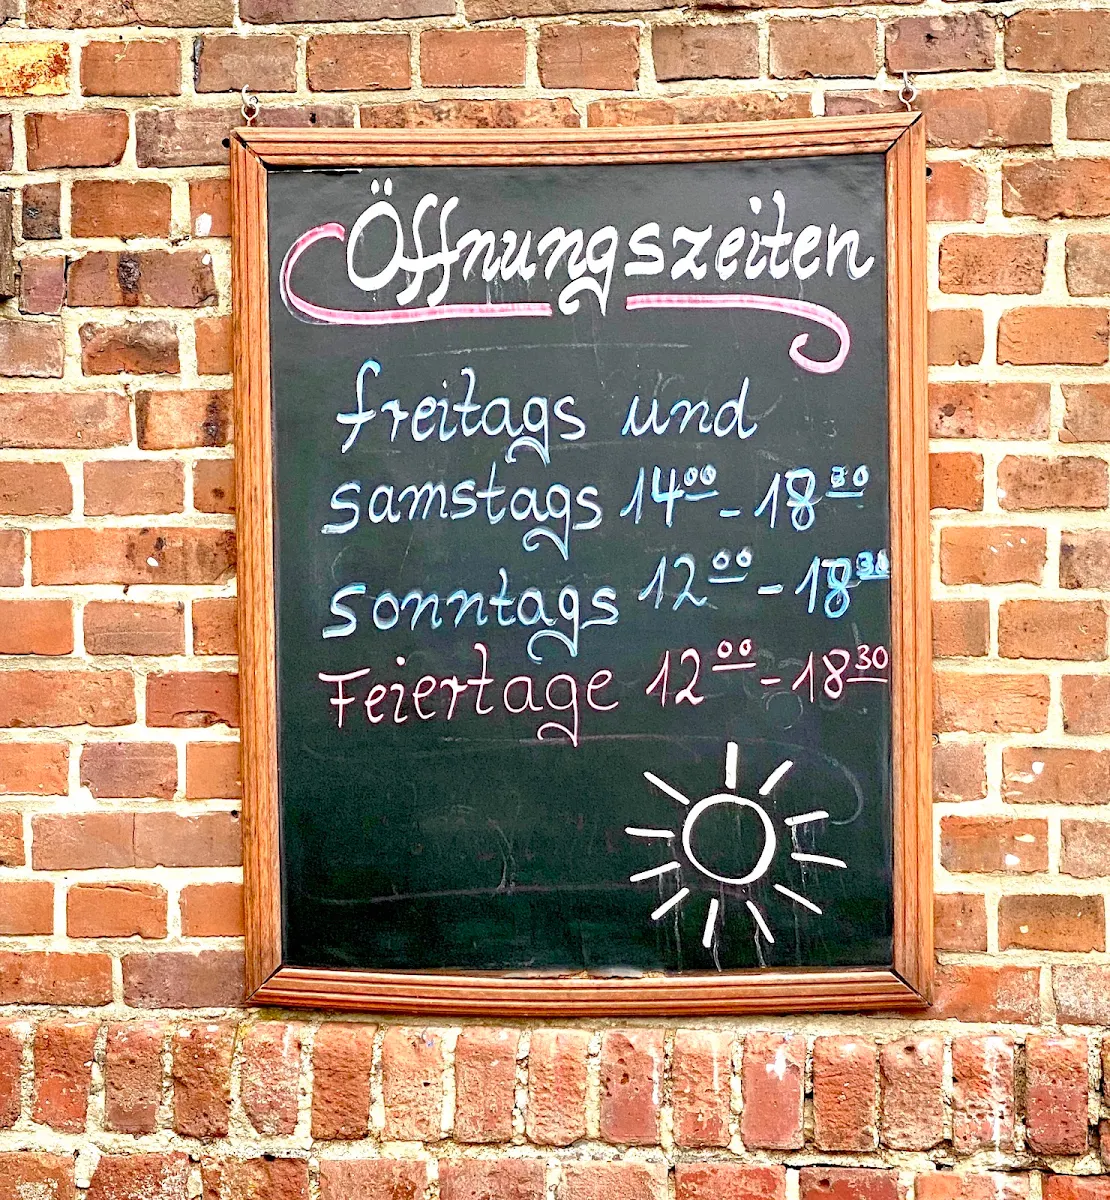 Öffnungszeiten
freitags und
samstags 14⁰⁰ - 18³⁰
sonntags 12⁰⁰ - 18³⁰
Feiertage 12⁰⁰ - 18³⁰